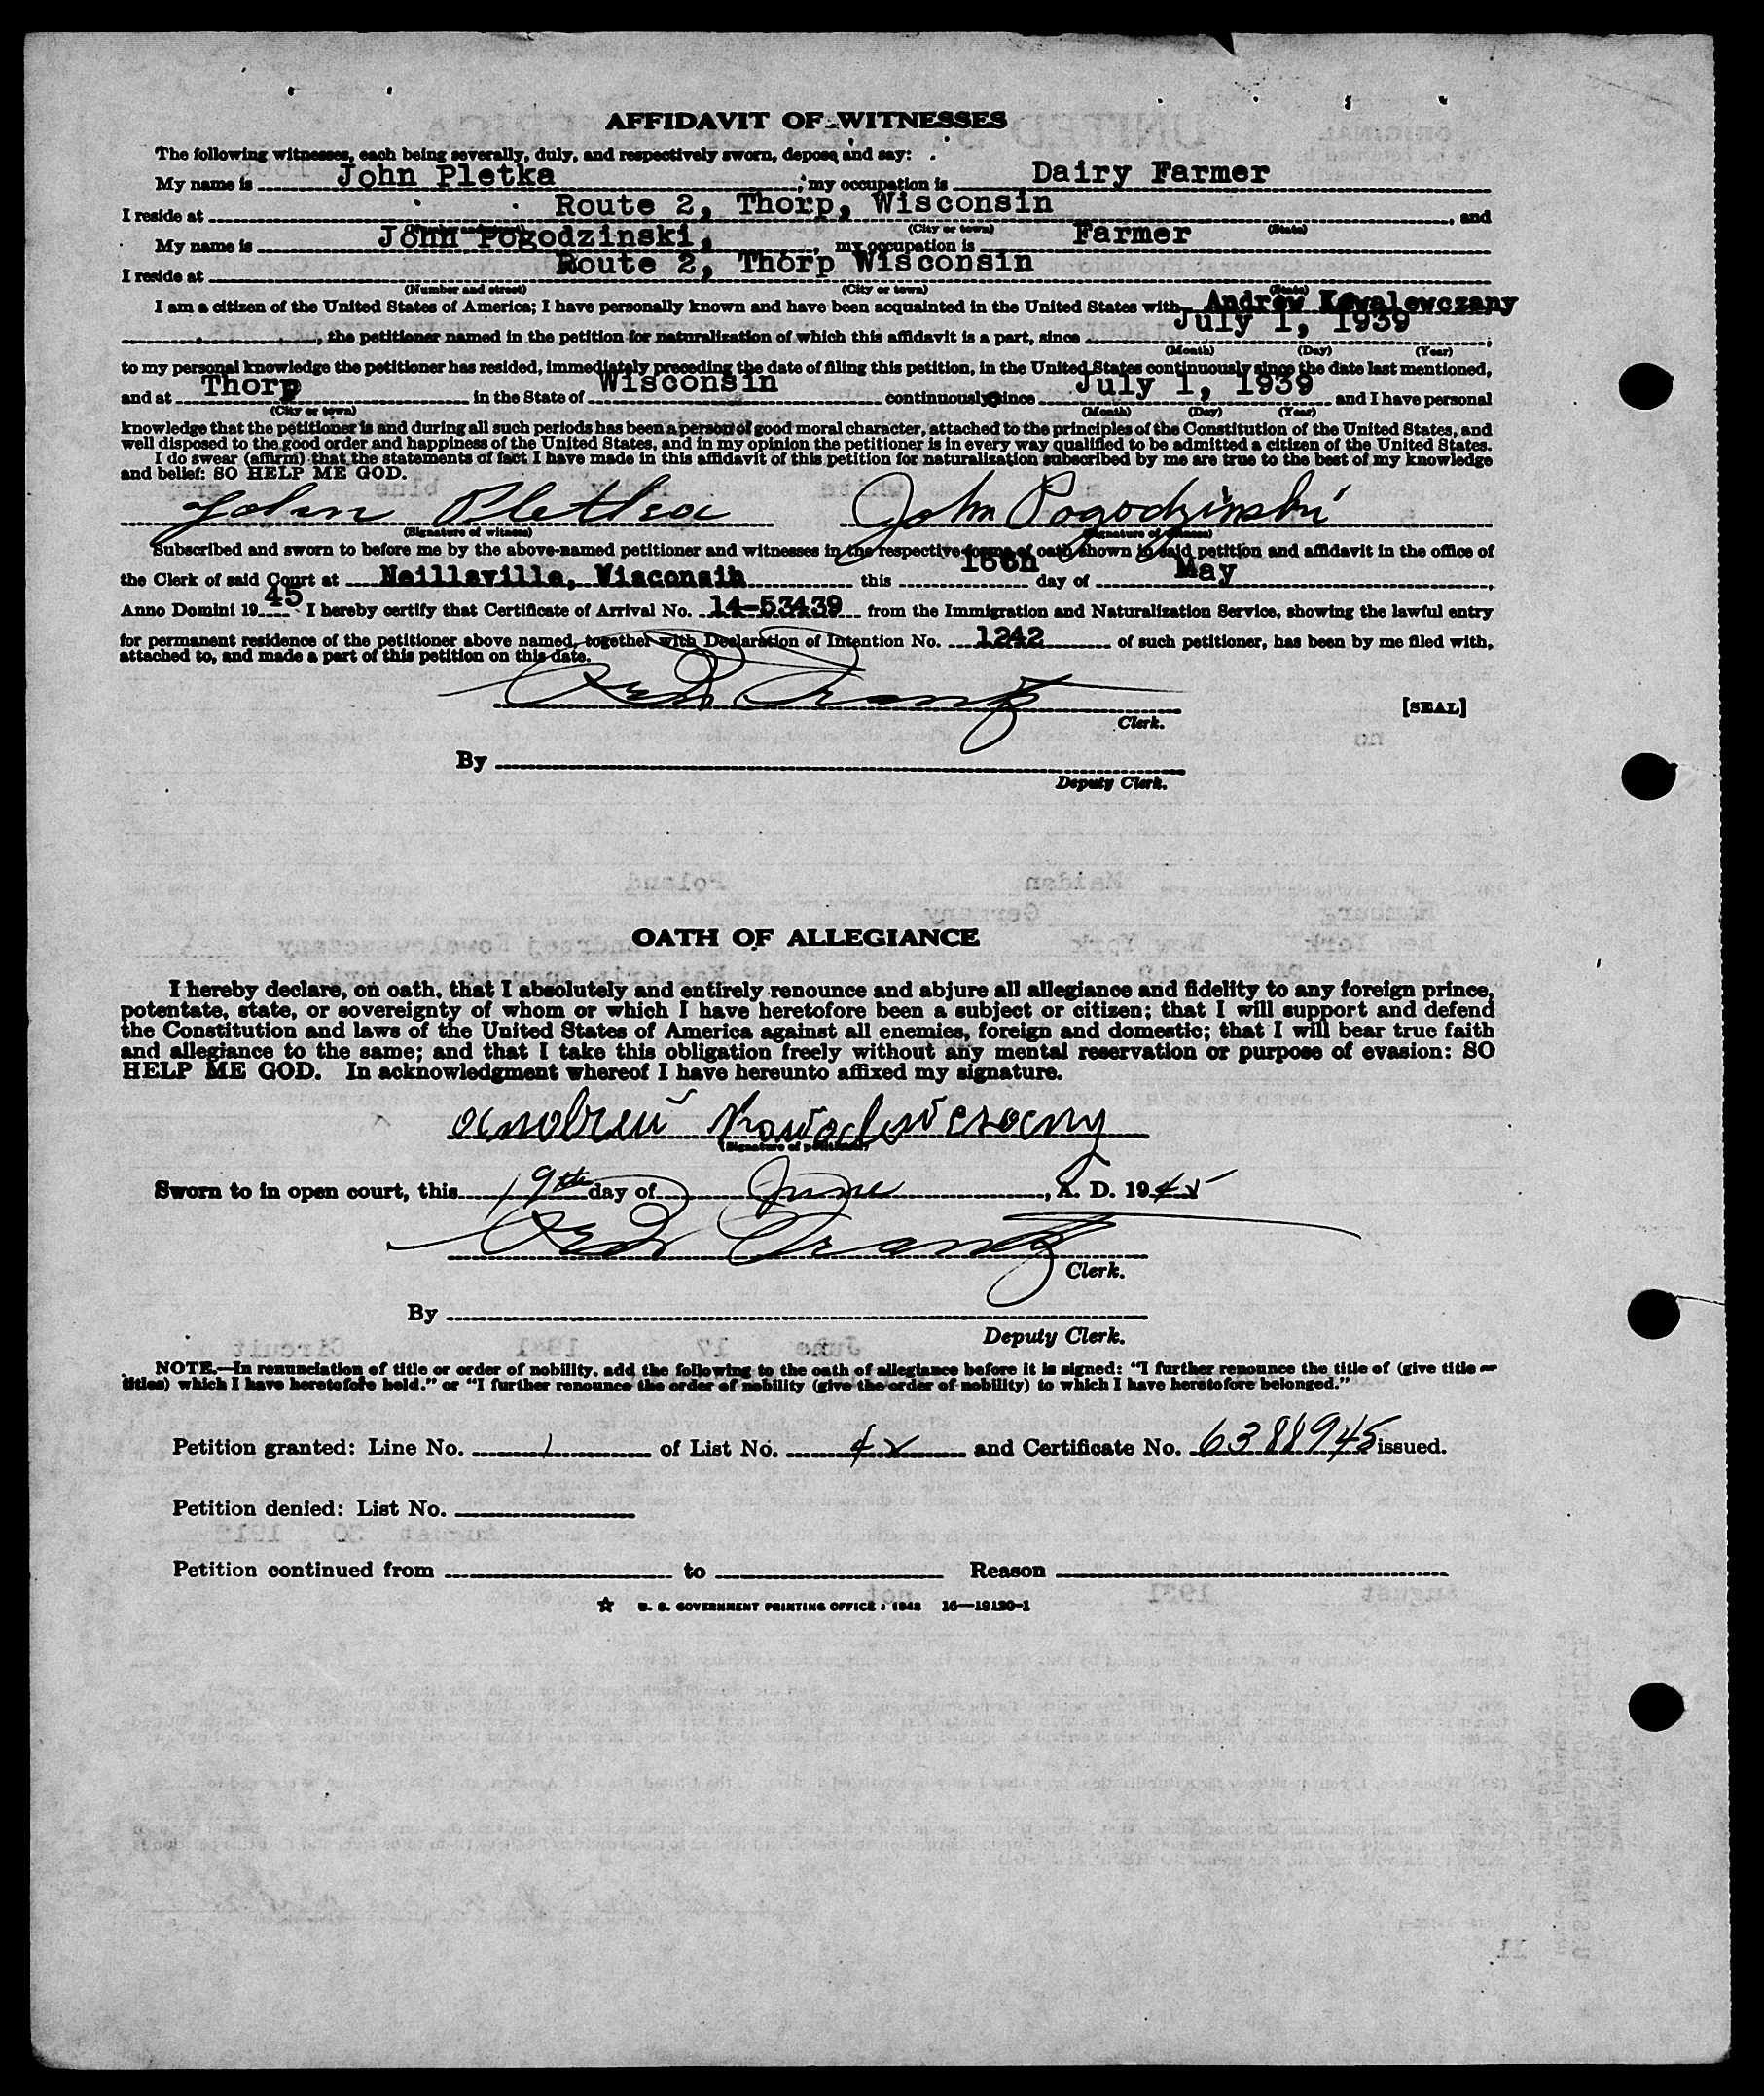 AFFIDAVIT OF WITNESSES
The following witnesses, each being severally, duly, and respectively sworn, depose and say:
My name is John Pletka, my occupation is Dairy Farmer
I reside at Route 2, Thorp, Wisconsin, and
(City or town) (State)
My name is John Pogodzinski, my occupation is Farmer
I reside at Route 2, Thorp Wisconsin
(Number and street) (City or town) (State)
I am a citizen of the United States of America; I have personally known and have been acquainted in the United States with Andrew Kowalewczany
, the petitioner named in the petition for naturalization of which this affidavit is a part, since July 1, 1939
(Month) (Day) (Year)
to my personal knowledge the petitioner has resided, immediately preceding the date of filing this petition, in the United States continuously since the date last mentioned,
and at Thorp in the State of Wisconsin continuously since July 1, 1939 and I have personal
(City or town) (Month) (Day) (Year)
knowledge that the petitioner is and during all such periods has been a person of good moral character, attached to the principles of the Constitution of the United States, and
well disposed to the good order and happiness of the United States, and in my opinion the petitioner is in every way qualified to be admitted a citizen of the United States.
I do swear (affirm) that the statements of fact I have made in this affidavit of this petition for naturalization subscribed by me are true to the best of my knowledge
and belief: SO HELP ME GOD.
John Pletka John Pogodzinski
(Signature of witness) (Signature of witness)
Subscribed and sworn to before me by the above-named petitioner and witnesses in the respective forms of oath shown in said petition and affidavit in the office of
the Clerk of said Court at Neillsville, Wisconsin this day of May,
Anno Domini 1945 I hereby certify that Certificate of Arrival No. 14-53439 from the Immigration and Naturalization Service, showing the lawful entry
for permanent residence of the petitioner above named, together with Declaration of Intention No. 1242 of such petitioner, has been by me filed with,
attached to, and made a part of this petition on this date.
[SEAL]
Clerk.
By
Deputy Clerk.
OATH OF ALLEGIANCE
I hereby declare, on oath, that I absolutely and entirely renounce and abjure all allegiance and fidelity to any foreign prince,
potentate, state, or sovereignty of whom or which I have heretofore been a subject or citizen; that I will support and defend
the Constitution and laws of the United States of America against all enemies, foreign and domestic; that I will bear true faith
and allegiance to the same; and that I take this obligation freely without any mental reservation or purpose of evasion: SO
HELP ME GOD. In acknowledgment whereof I have hereunto affixed my signature.
Andrew Kowalewczany
(Signature of petitioner)
Sworn to in open court, this 19th day of June, A. D. 1945
Clerk.
By
Deputy Clerk.
NOTE.—In renunciation of title or order of nobility, add the following to the oath of allegiance before it is signed: "I further renounce the title of (give title or
titles) which I have heretofore held." or "I further renounce the order of nobility (give the order of nobility) to which I have heretofore belonged."
Petition granted: Line No. 1 of List No. 42 and Certificate No. 6388945 issued.
Petition denied: List No.
Petition continued from to Reason
U. S. GOVERNMENT PRINTING OFFICE : 1943 16—19120-1